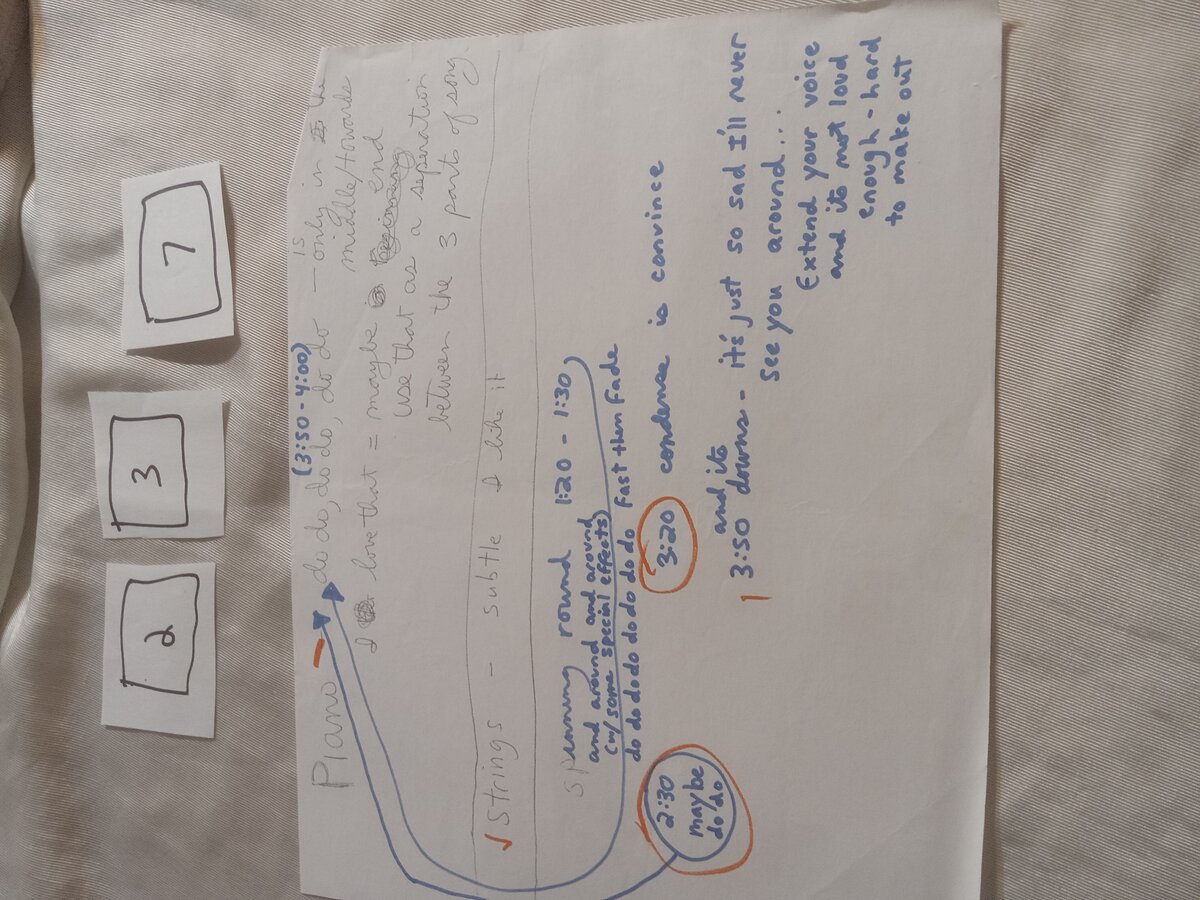 2
3
7
(3:50 - 4:00)
Piano — do do, do do, do do — is only in the
middle/towards
I love that = maybe end
use that as a seperation
between the 3 parts of song.
✓ Strings - subtle I like it
spinning round 1:20 - 1:30
and around and around
(w/ some special effects)
do do do do do do do Fast then Fade
2:30
maybe
do do
3:20 condense is convince
and its
3:50 downs - it's just so sad I'll never
see you around...
Extend your voice
and its not loud
enough - hard
to make out